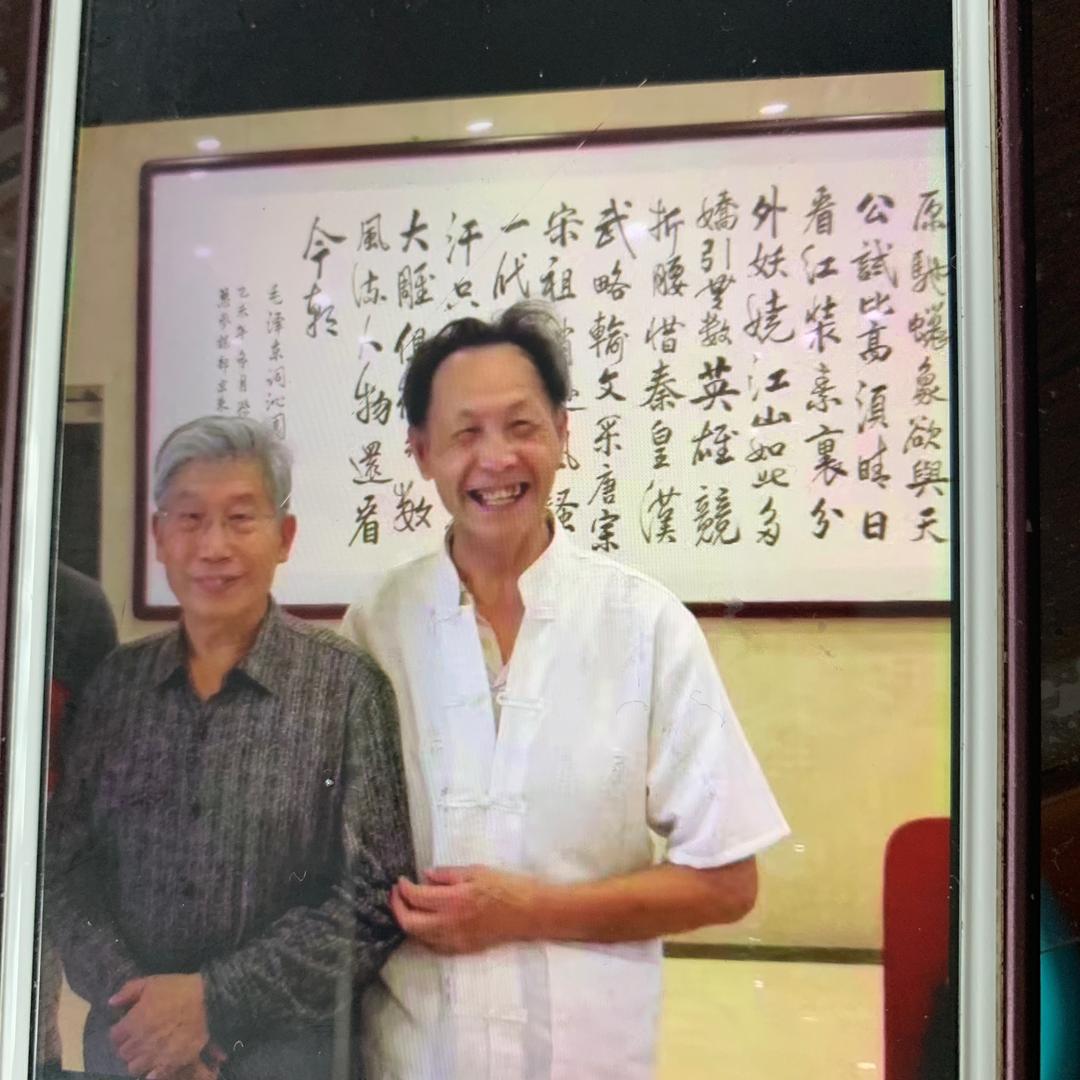 原馳蠟象欲與天
公試比高須晴日
看紅裝素裹分
外妖嬈江山如此多
嬌引無數英雄競
折腰惜秦皇漢
武略輸文采唐宗
宋祖稍風騷
一代
汗只
大雕俱數
風流人物還看
今朝
毛泽东词沁园
乙未年月